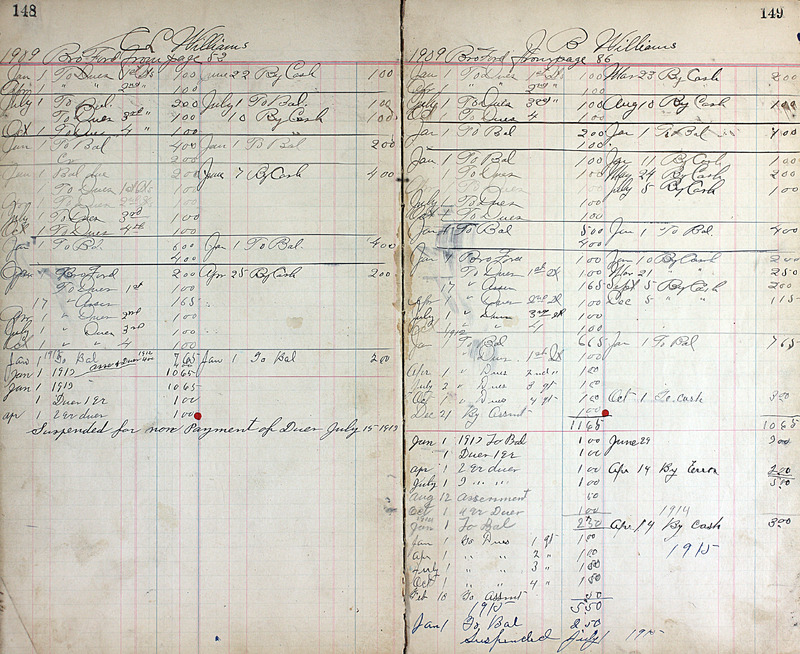 148
C L Williams
1909 Bro Ford from page 53
Jan 1 To Dues 1st 1.00 June 22 By Cash 1.00
" " 2nd " 1.00
July 1 To Bal. 2.00 July 1 To Bal. 1.00
To Dues 3rd " 1.00 10 By Cash 1.00
Oct 1 To Dues 4 " 1.00
Jan 1 To Bal 4.00 Jan 1 To Bal 2.00
2.00
Bal due 2.00 June 7 By Cash 4.00
To Dues 1st 1.00
1.00
July 1 To Dues 3rd 1.00
Oct 1 To Dues 4th 1.00
Jan 1 To Bal 6.00 Jan 1 To Bal. 4.00
4.00
Jan Bro Ford 2.00 Apr 25 By Cash 2.00
To Dues 1st 1.00
17 " Assn 1.65
Apr 1 " Dues 2nd 1.00
July 1 " Dues 3rd 1.00
Oct 1 " " 4 1.00
Jan 1 To Bal 7.65 Jan 1 To Bal 2.00
Jan 1 1913 10 65
Jan 1 1913 10 65
1 Dues 1 qr 1 00
apr 1 2 qr dues 1 00
Suspended for non Payment of Dues July 15 1913
149
J B Williams
1909 Bro Ford from page 86
Jan 1 To Dues 1st 1.00 Mar 23 By Cash 2.00
" " 2nd " 1.00
July 1 To Dues 3rd " 1.00 Aug 10 By Cash 1.00
Oct 1 To Dues 4 1.00
Jan 1 To Bal 2.00 Jan 1 To Bal. 1.00
1.00
Jan 1 To Bal 1.00 Jan 11 By Cash 1.00
To Dues 1.00 May 24 By Cash 2.00
July 5 By Cash 1.00
July To Dues 1.00
Oct 1 To Dues 1.00
Jan 1 To Bal 5.00 Jan 1 To Bal 4.00
4.00
Jan Bro Ford 1.00 Jan 10 By Cash 2.00
To Dues 1st 1.00 Mar 21 " " 2.50
7 " Assn 1.65 Sept 5 By Cash 2.00
Apr " Dues 2nd 1.00 Dec 5 " " 1.15
July 1 " Dues 3rd 1.00
Oct 1 " " 4 1.00
Jan To Bal 6.65 Jan 1 To Bal 7.65
Dues 1st 1.00
Apr 1 " Dues 2nd " 1.00
July 2 " Dues 3 qr 1.00
Oct 1 " Dues 4 qr 1.00 Oct 1 To cash 3.00
Dec 21 By Assmt 1.00
11 65 10 65
Jan 1 1913 To Bal 1 00 June 29 2 00
1 Dues 1 qr 1 00
apr 1 2 qr dues 1 00 Apr 14 By Error 2.00
July 1 3 " " 1 00 5.00
Aug 12 assessment 50
Oct 1 4 qr Dues 1 00 1914
Jan 1 To Bal 2.50 Apr 14 By Cash 3.00
Jan 1 To Dues 1 qr 1.00
Apr 1 " " 2 " 1.00 1915
July 1 " " 3 " 1.00
Oct 1 " " 4 " 1.00
Oct 18 To Assmt .50
1915 5.50
Jan 1 To Bal 2.50
Suspended July 1 1915